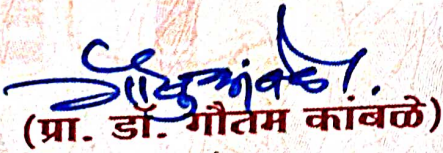 (प्रा. डॉ. गौतम कांबळे)